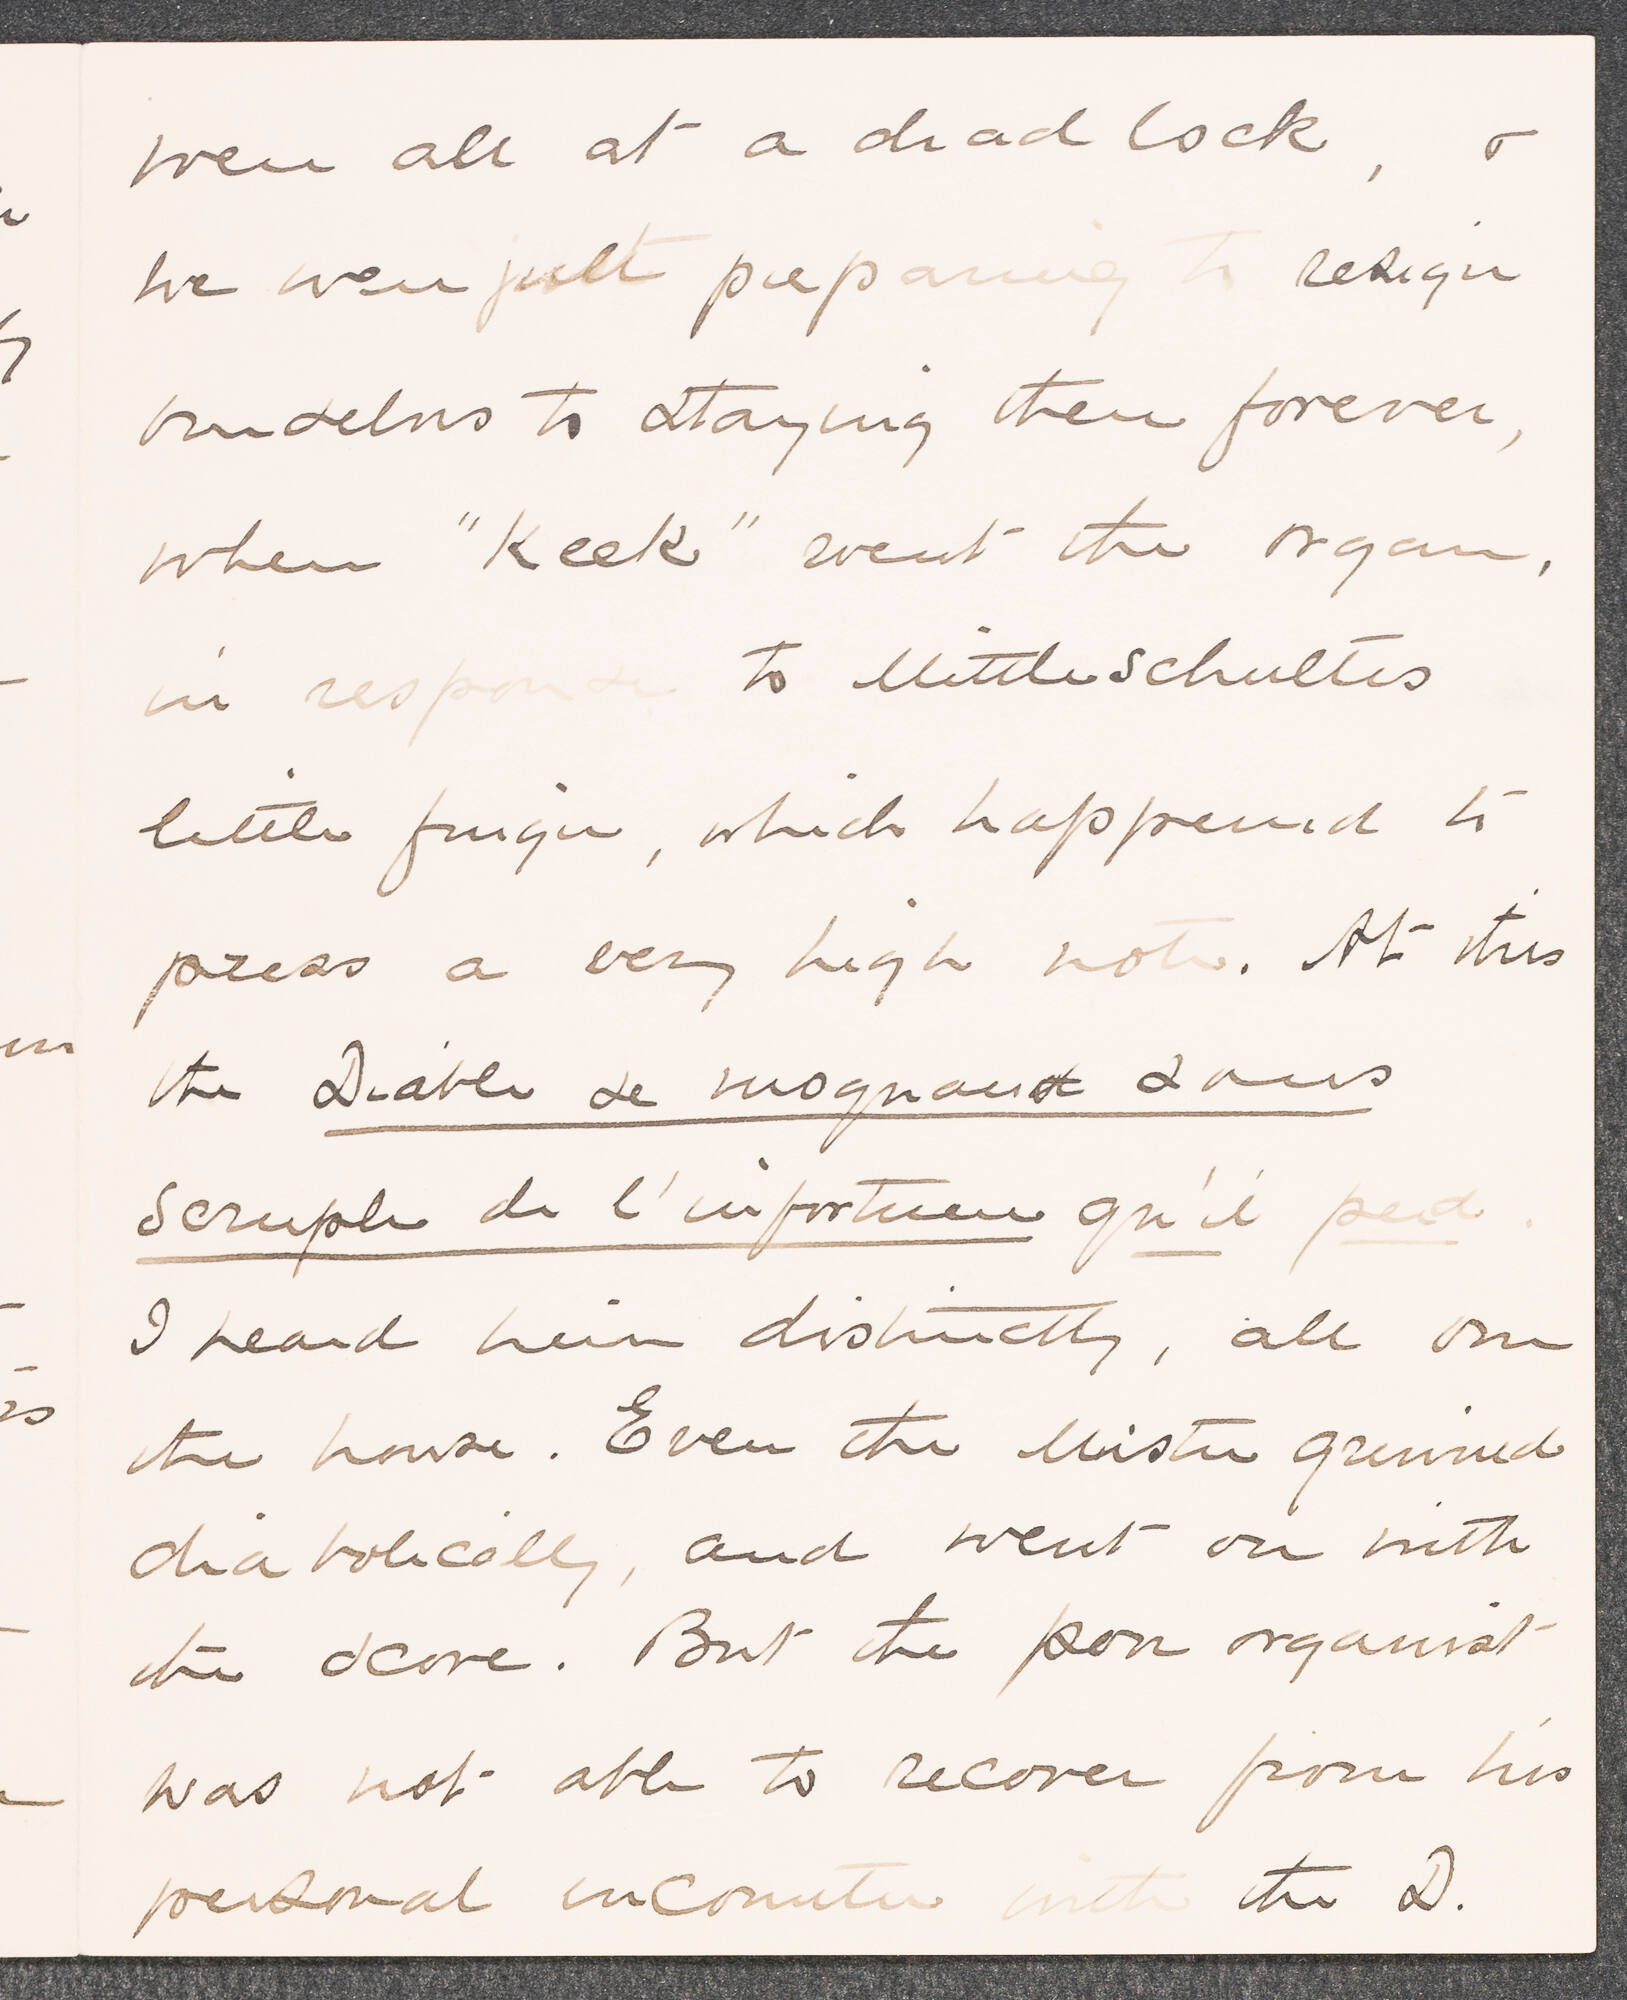 were all at a dead lock, &
we were just preparing to resign
ourselves to staying there forever,
when "Keek" went the organ,
in response to Mittleschultes
little finger, which happened to
press a very high note. At this
the Diable se moquant sans
scruple de l'infortune qu'il
I heard him distinctly, all over
the house. Even the Mister grinned
diabolically, and went on with
the score. But the poor organist
was not able to recover from his
personal encounter with the D.